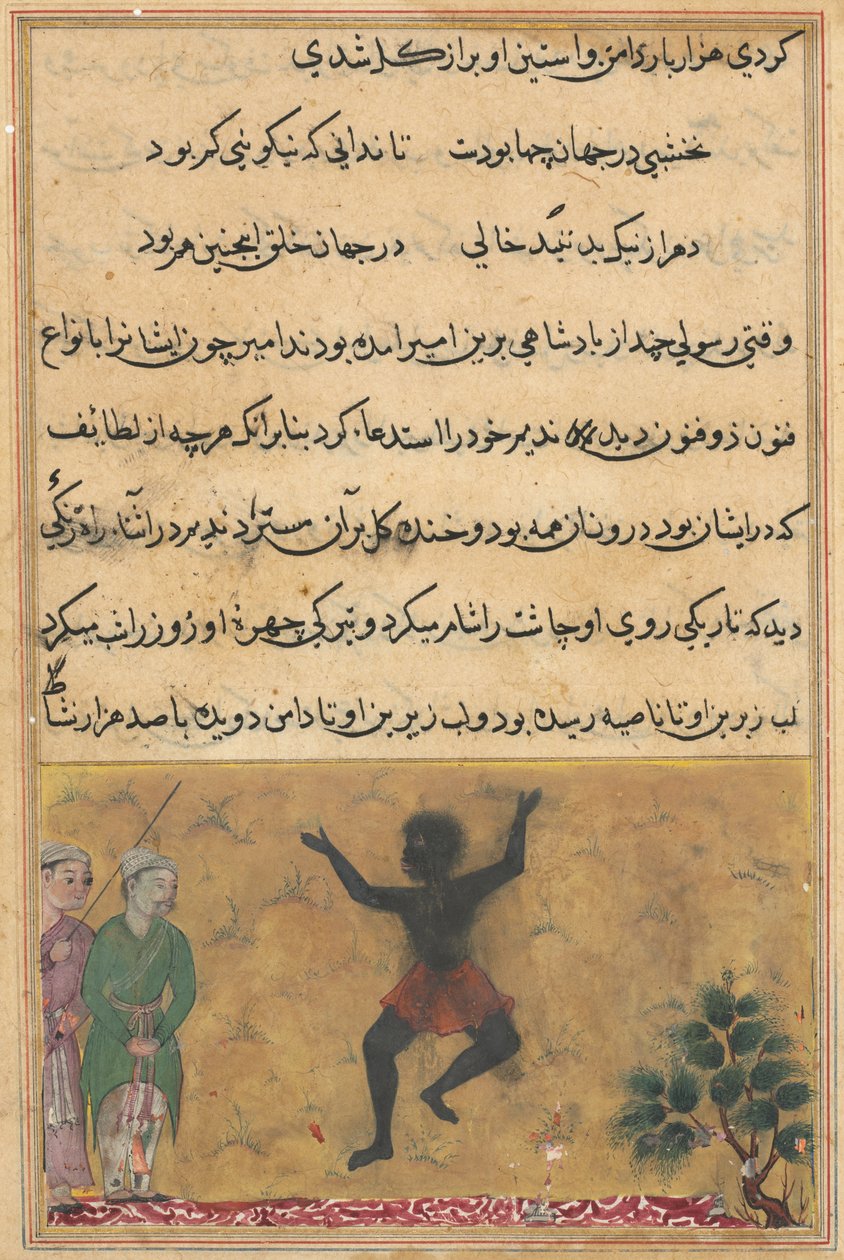 کردي هزار بار دامن و استین او پراز کل شدي
نخشبي در جهان چها بودست تا نداني که نیکوئي کم بود
دهر از نیک بد نشد خالي در جهان خلق اینچنین هم بود
وقتي رسولي چند از بادشاهي برین امیر امده بودند امیر چون ایشانرا بانواع
فنون ذوفنون دید ندیم خود را استدعاء کرد بنابر انکه هرچه از لطائف
که در ایشان بود درون ان همه بود و خنده کل بر آن مستزاد ندیم در اثناء راه زنکئي
دید که تاریکي روي او چاشت را شام میکرد و تیرکي چهرۀ او روز را شب میکرد
لب زبرین او تا ناصیه رسیده بود ولب زیرین او تا دامن دویده با صد هزار نشاط